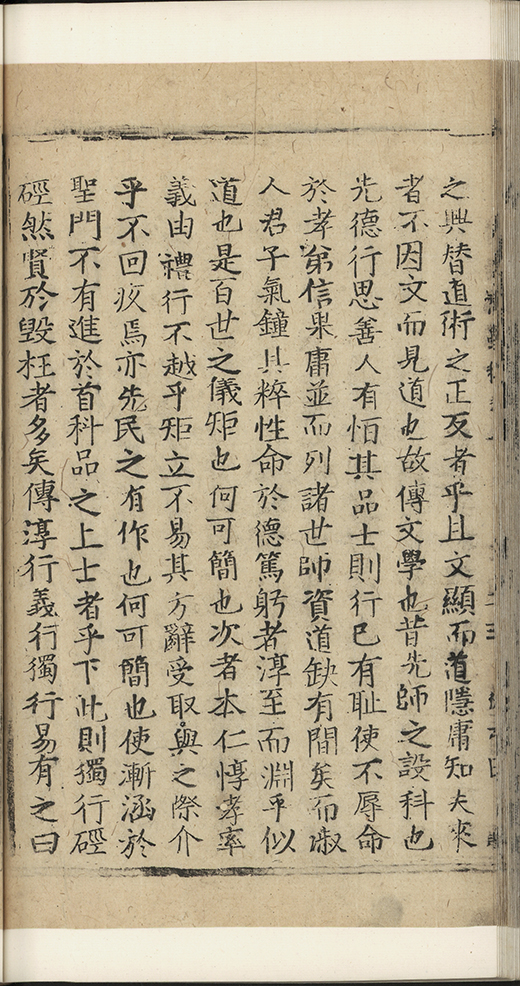 之興替道術之正反者乎且文顯而道隱庸知夫來
者不因文而見道也故傳文學也昔先師之設科也
先德行思善人有恒其品士則行己有耻使不辱命
於孝弟信果庸並而列諸世師資道缺有間矣而淑
人君子氣鐘其粹性命於德篤躬者淳至而淵乎似
道也是百世之儀矩也何可簡也次者本仁惇孝率
義由禮行不越乎矩立不易其方辭受取與之際介
乎不回疚焉亦先民之有作也何可簡也使漸涵於
聖門不有進於首科品之上士者乎下此則獨行硜
硜然賢於毀枉者多矣傳淳行義行獨行易有之曰